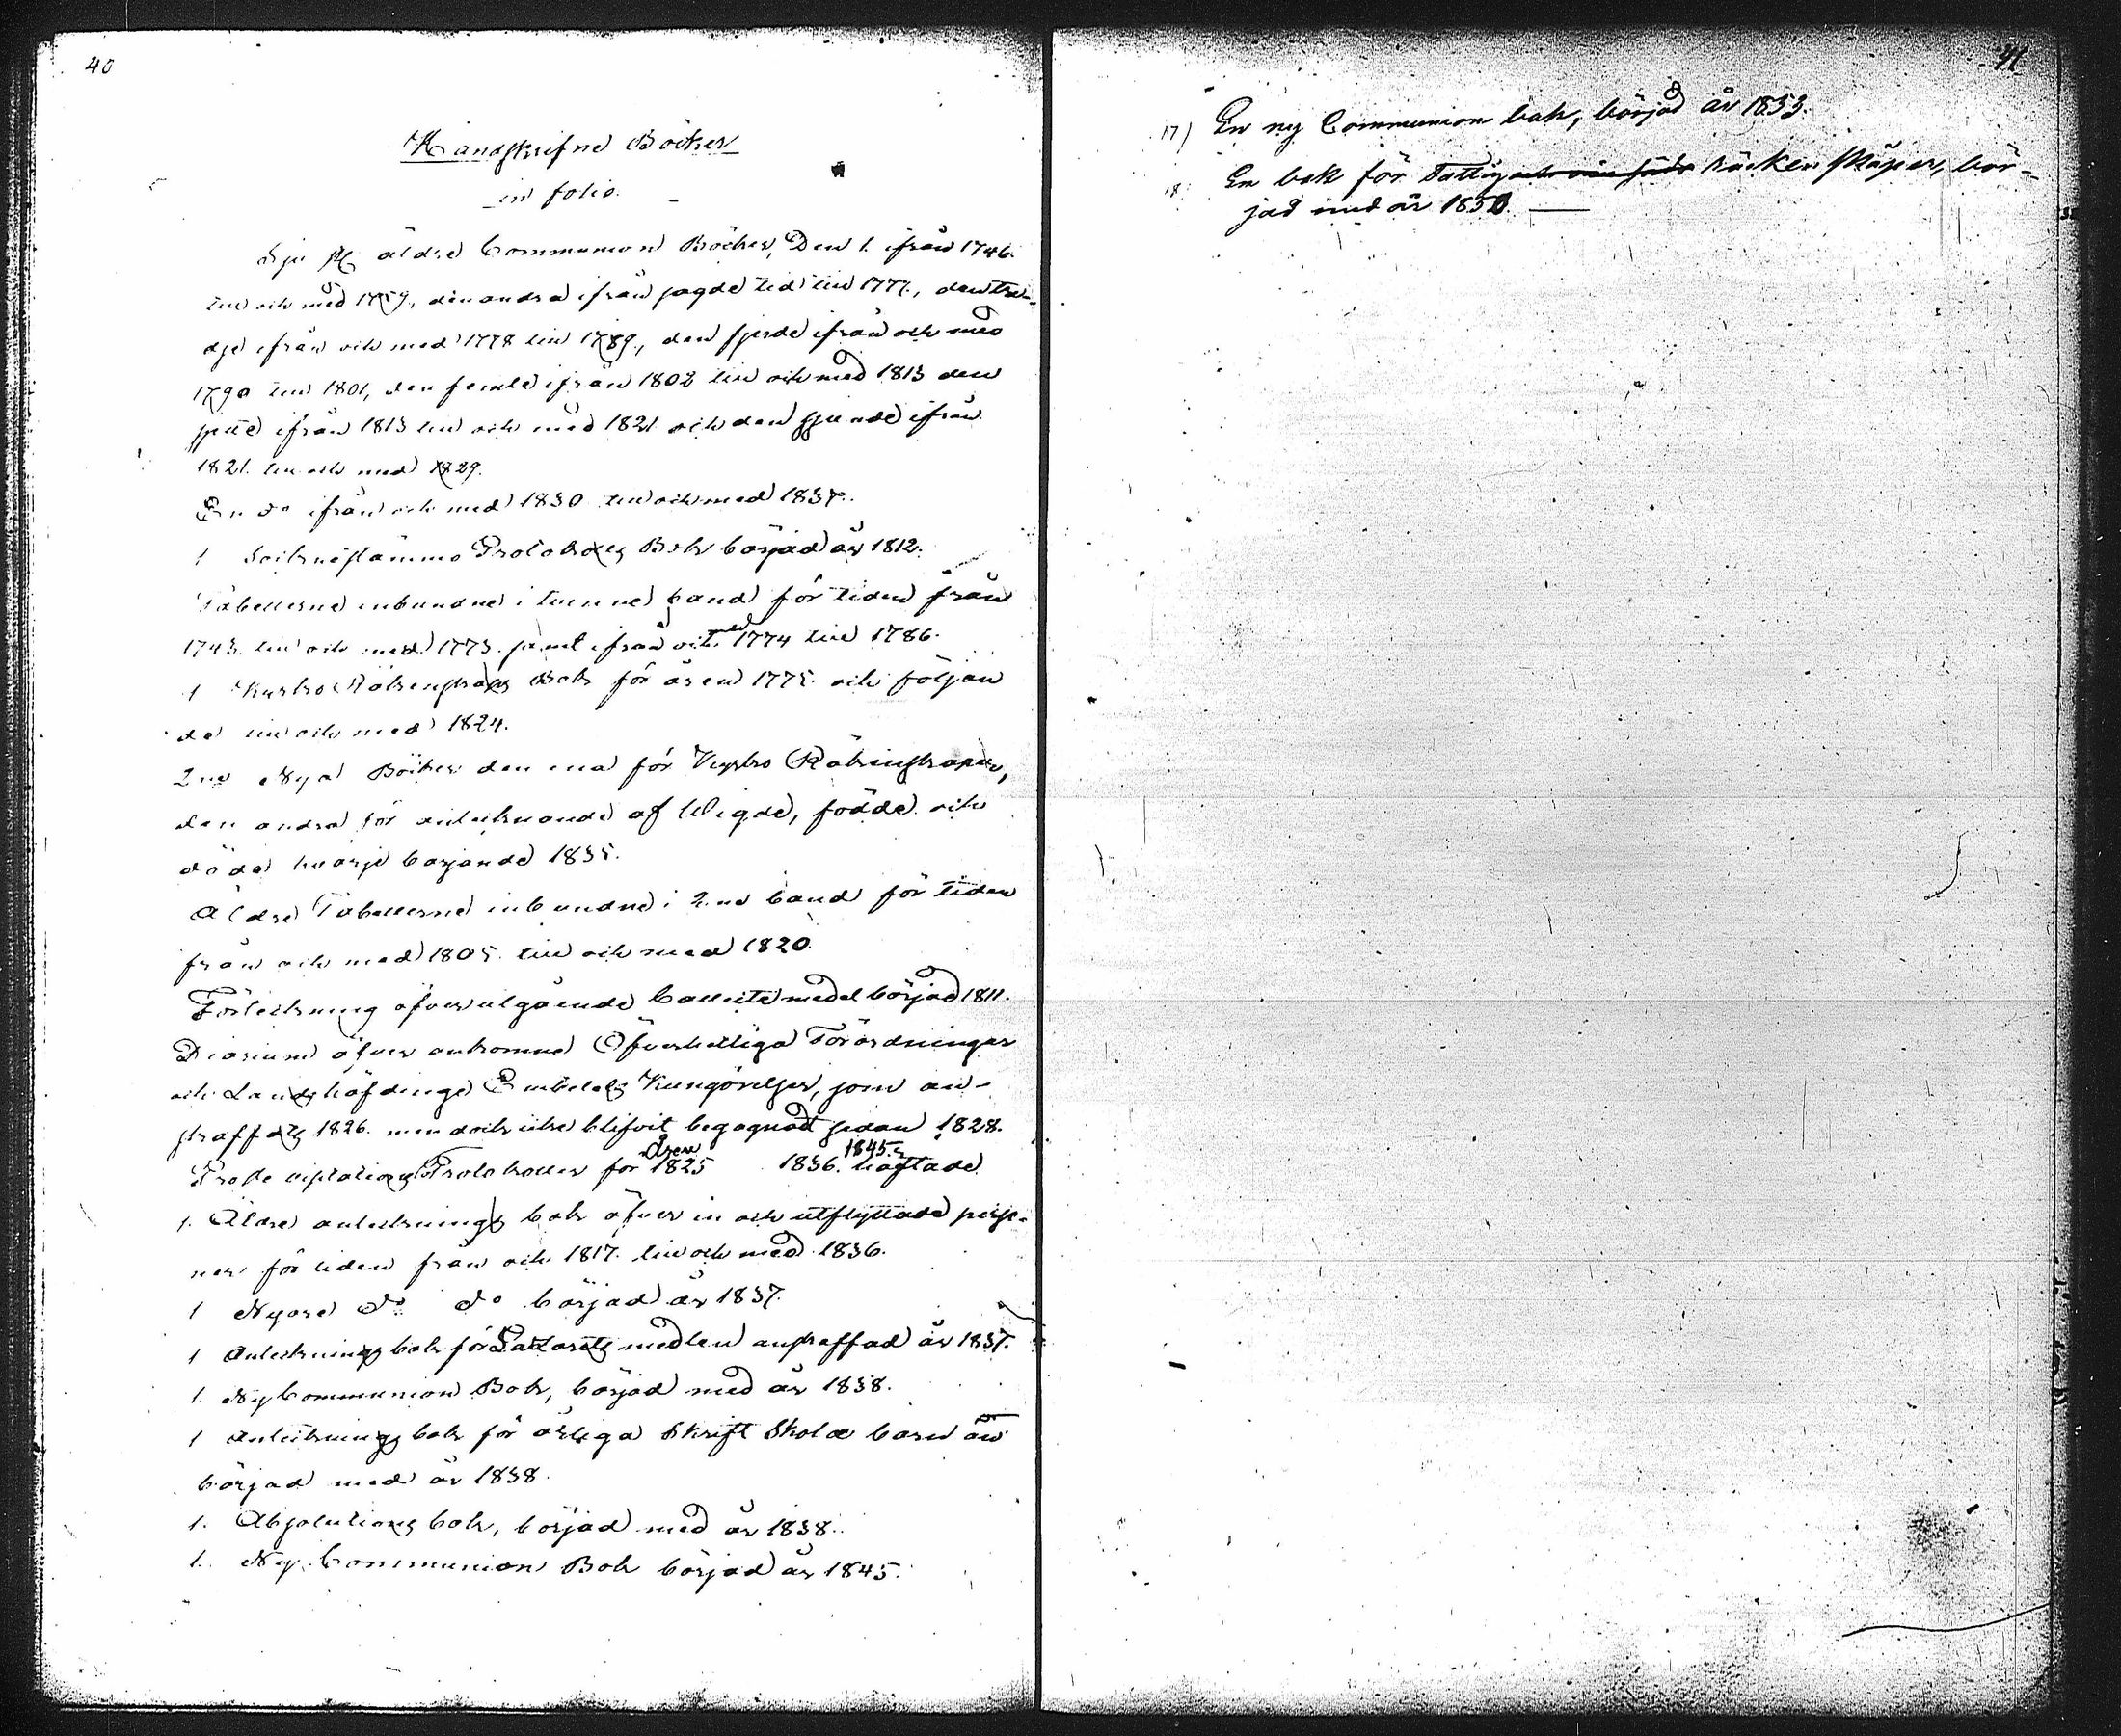 40
Handskrifne Böcker
in folio.
Sju st äldre Communion Böcker, Den 1. ifrån 1746.
till och med 1759, den andra ifrån sagde tid till 1777, den tre-
dje ifrån och med 1778 till 1789, den fjerde ifrån och med
1790 till 1801, den femte ifrån 1802 till och med 1813 den
sjette ifrån 1813 till och med 1821 och den sjunde ifrån
1821. till och med 1829.
En do ifrån och med 1830 till och med 1837.
1 Socknestämmo Protokolls Bok börjad år 1812.
Tabellerne inbundne i tvenne band för tiden från
1743. till och med 1773. samt ifrån och med 1774 till 1786.
1 Kyrko Räkenskaps Bok för åren 1775. och följan
de till och med 1824.
2ne Nya Böcker den ena för Kyrko Räkenskaper,
den andra för antecknande af Wigde, födde och
döde hvarje börjande 1835.
Äldre Tabellerne inbundne i 2ne band för tiden
från och med 1805. till och med 1820.
Förteckning öfver utgående Collecte medel börjad 1811.
Diarium öfver ankomne Öfverhetliga Förordningar
och Landshöfdinge Embetets Kungörelser, som an-
skaffats 1826. men dock icke blifvit begagnad sedan 1828.
åren 1845.
Protokoller för 1825 1836. häftade
1. Äldre antecknings bok öfver in och utflyttade perso-
ner för tiden från och 1817. till och med 1836.
1 Nyare do do börjad år 1837.
1 Antecknings bok för Pastorats medlen anskaffad år 1837.
1. Ny Communion Bok, börjad med år 1838.
1 Antecknings bok för årliga Skrift Skola barn
börjad med år 1838.
1. Absolutions bok, börjad med år 1838.
1. Ny Communion Bok börjad år 1845.
41
17) En ny Communion bok, börjad år 1853.
18 En bok för Fattig Räkenskaper, bör-
jad med år 1850.